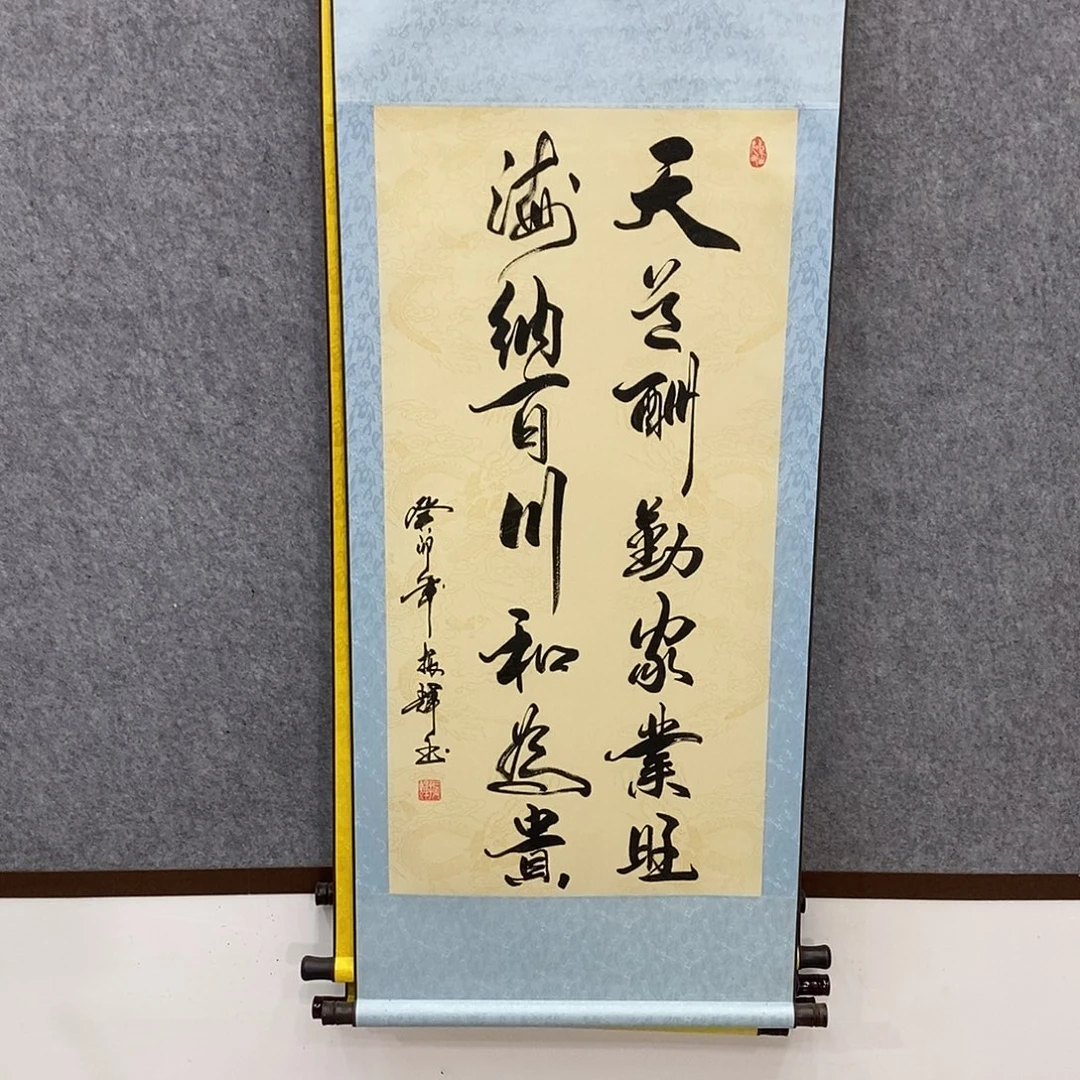 天道酬勤家業旺
海纳百川和为貴
癸卯年振輝书